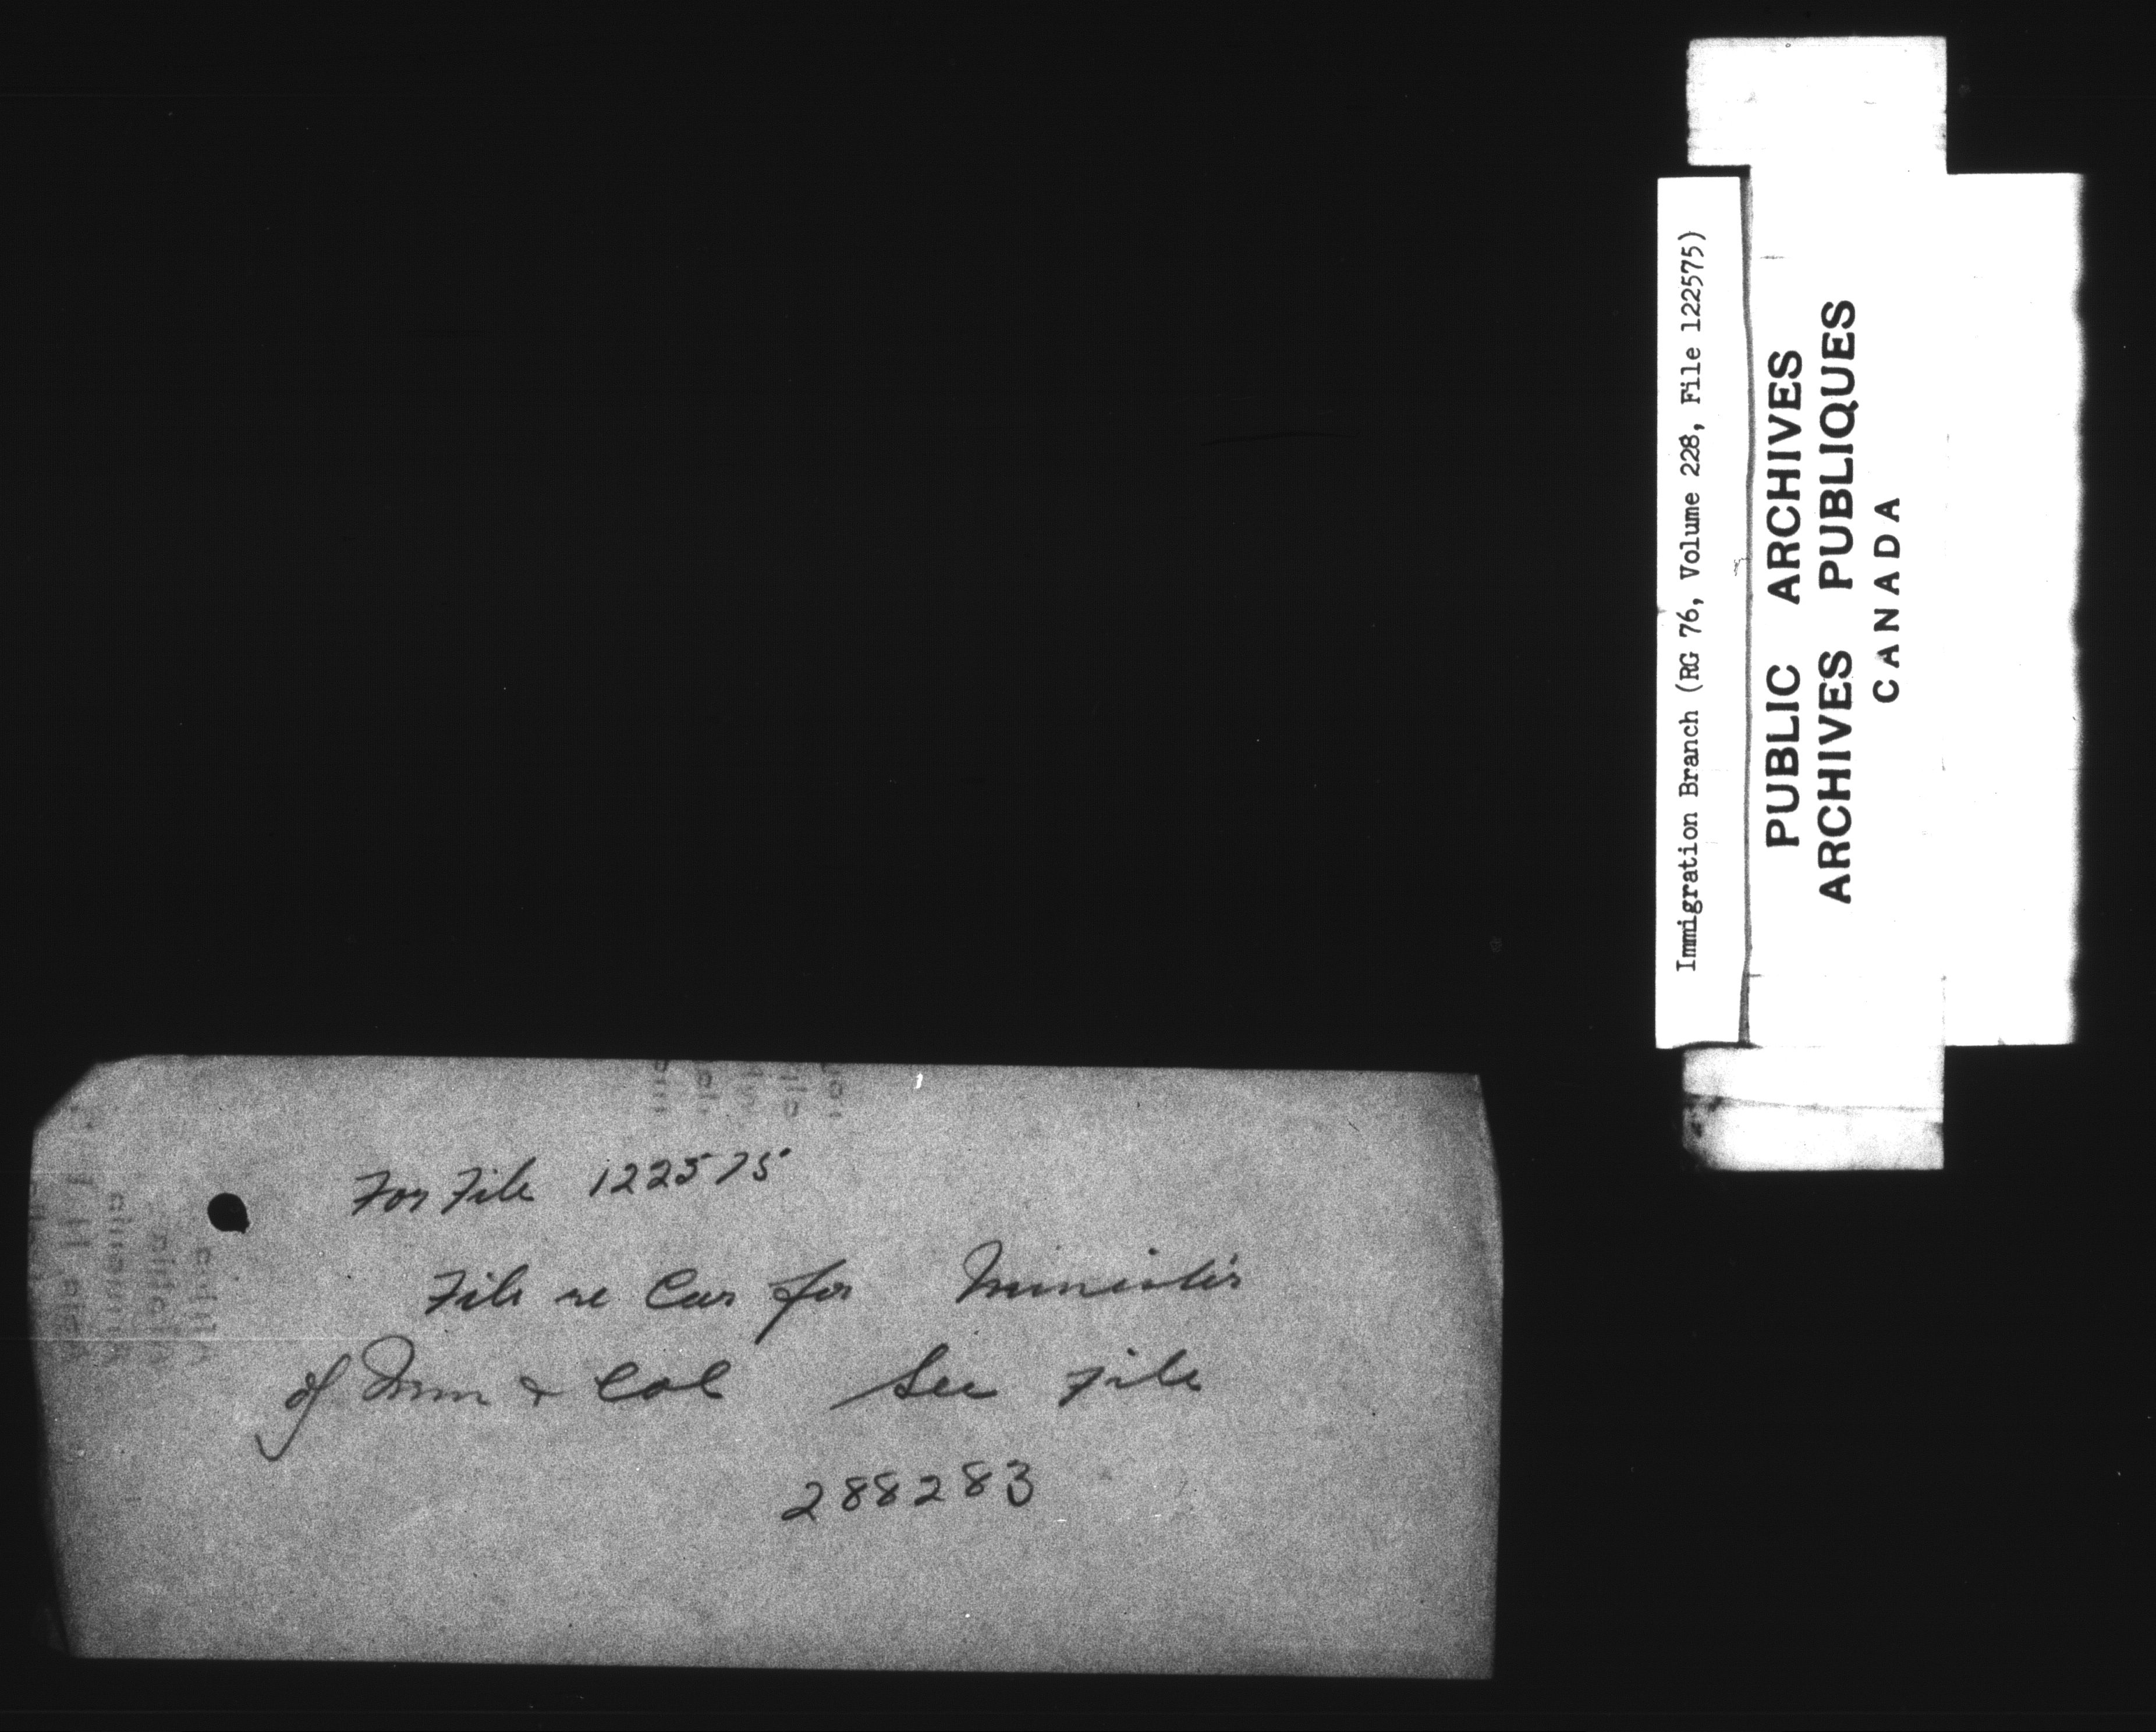 For File 122575
File re Car for Minister
of Imm & Col See File
288283
Immigration Branch (RG 76, Volume 228, File 122575)
PUBLIC ARCHIVES
ARCHIVES PUBLIQUES
CANADA